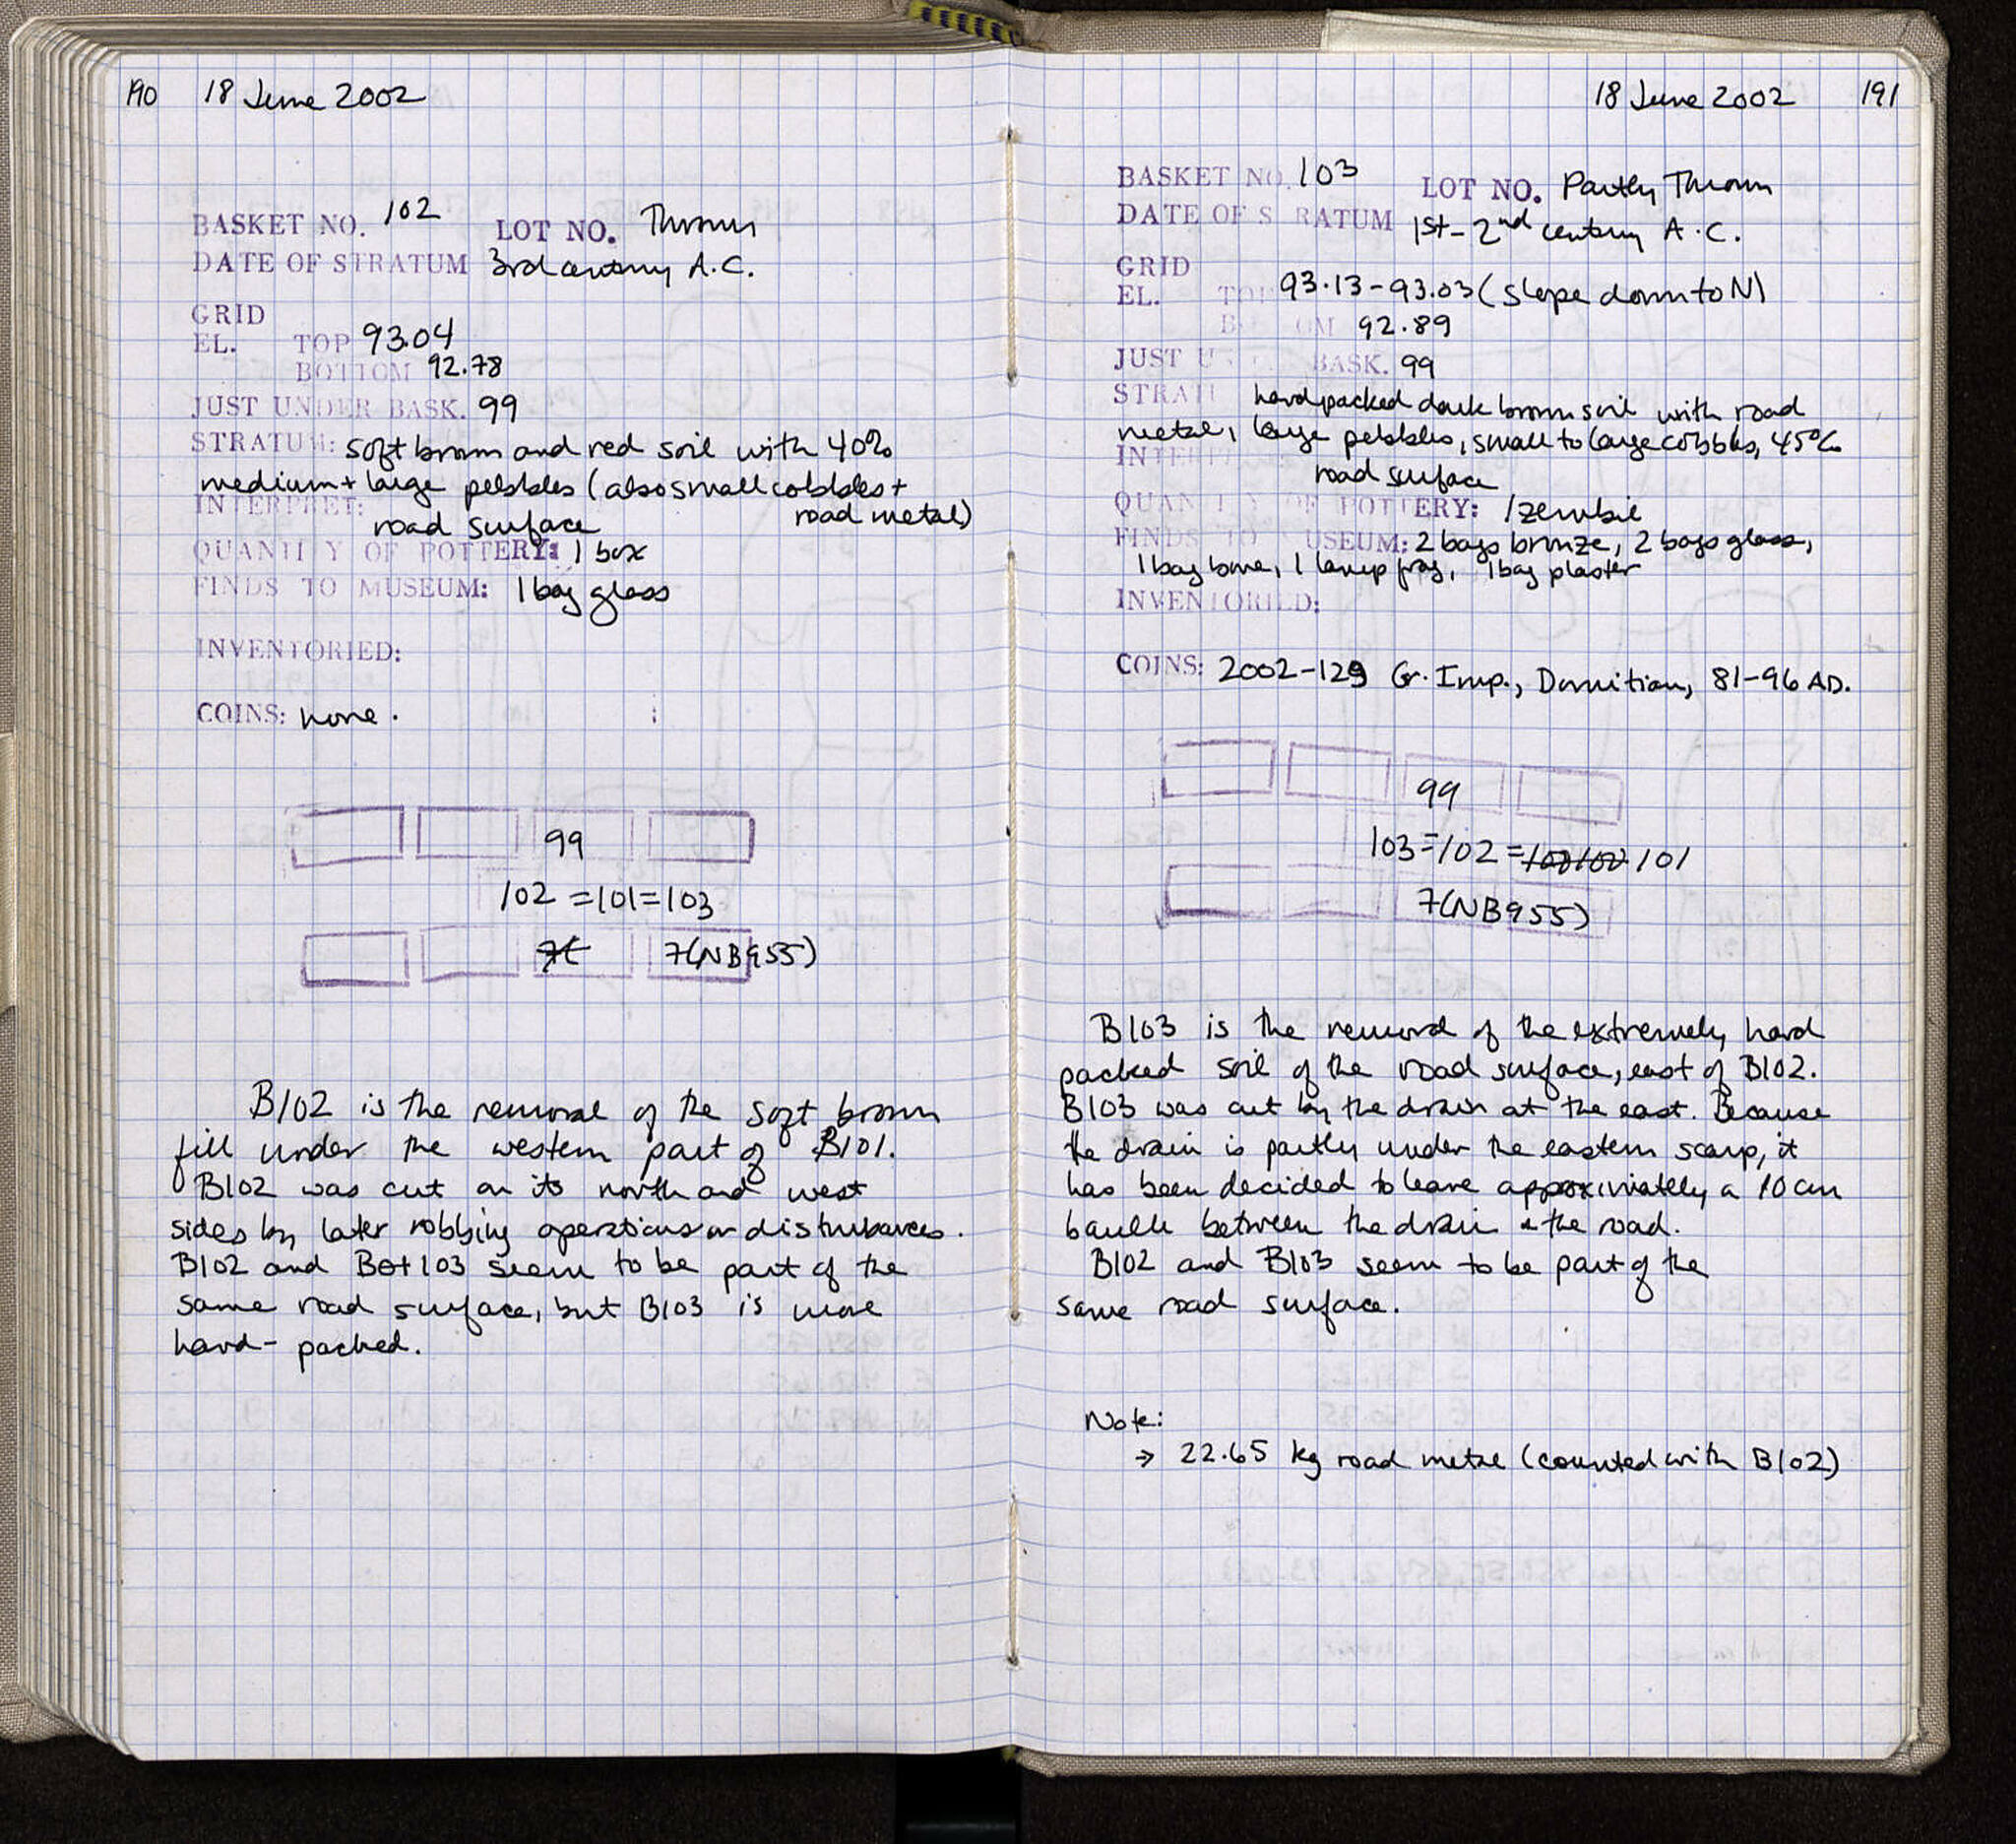 190 18 June 2002
BASKET NO. 102 LOT NO. Thrown
DATE OF STRATUM 3rd century A.C.
GRID
EL. TOP 93.04
BOTTOM 92.78
JUST UNDER BASK. 99
STRATUM: soft brown and red soil with 40%
medium + large pebbles (also small cobbles +
road metal)
INTERPRET: road surface
QUANTITY OF POTTERY: 1 box
FINDS TO MUSEUM: 1 bag glass
INVENTORIED:
COINS: none.
99
102 = 101 = 103
7(NB955)
B102 is the removal of the soft brown
fill under the western part of B101.
B102 was cut on its north and west
sides by later robbing operations or disturbances.
B102 and B103 seem to be part of the
same road surface, but B103 is more
hard-packed.
18 June 2002 191
BASKET NO. 103 LOT NO. Partly Thrown
DATE OF STRATUM 1st - 2nd century A.C.
GRID
EL. TOP 93.13-93.03 (slope down to N)
BOTTOM 92.89
JUST UNDER BASK. 99
STRATUM hardpacked dark brown soil with road
metal, large pebbles, small to large cobbles, 45%
INTERPRET road surface
QUANTITY OF POTTERY: 1 zembil
FINDS TO MUSEUM: 2 bags bronze, 2 bags glass,
1 bag bone, 1 lamp frag, 1 bag plaster
INVENTORIED:
COINS: 2002-129 Gr. Imp., Domitian, 81-96 AD.
99
103 = 102 = 101
7(NB955)
B103 is the removal of the extremely hard
packed soil of the road surface, east of B102.
B103 was cut by the drain at the east. Because
the drain is partly under the eastern scarp, it
has been decided to leave approximately a 10 cm
baulk between the drain & the road.
B102 and B103 seem to be part of the
same road surface.
Note:
→ 22.65 kg road metal (counted with B102)